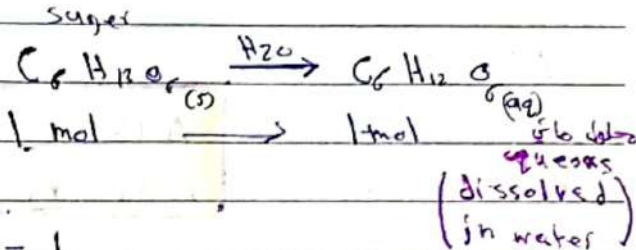 suger
C₆H₁₂O₆(s) —H₂O→ C₆H₁₂O₆(aq)
1 mol → 1 mol محلول مائي
queous
(dissolved
in water)
= 1